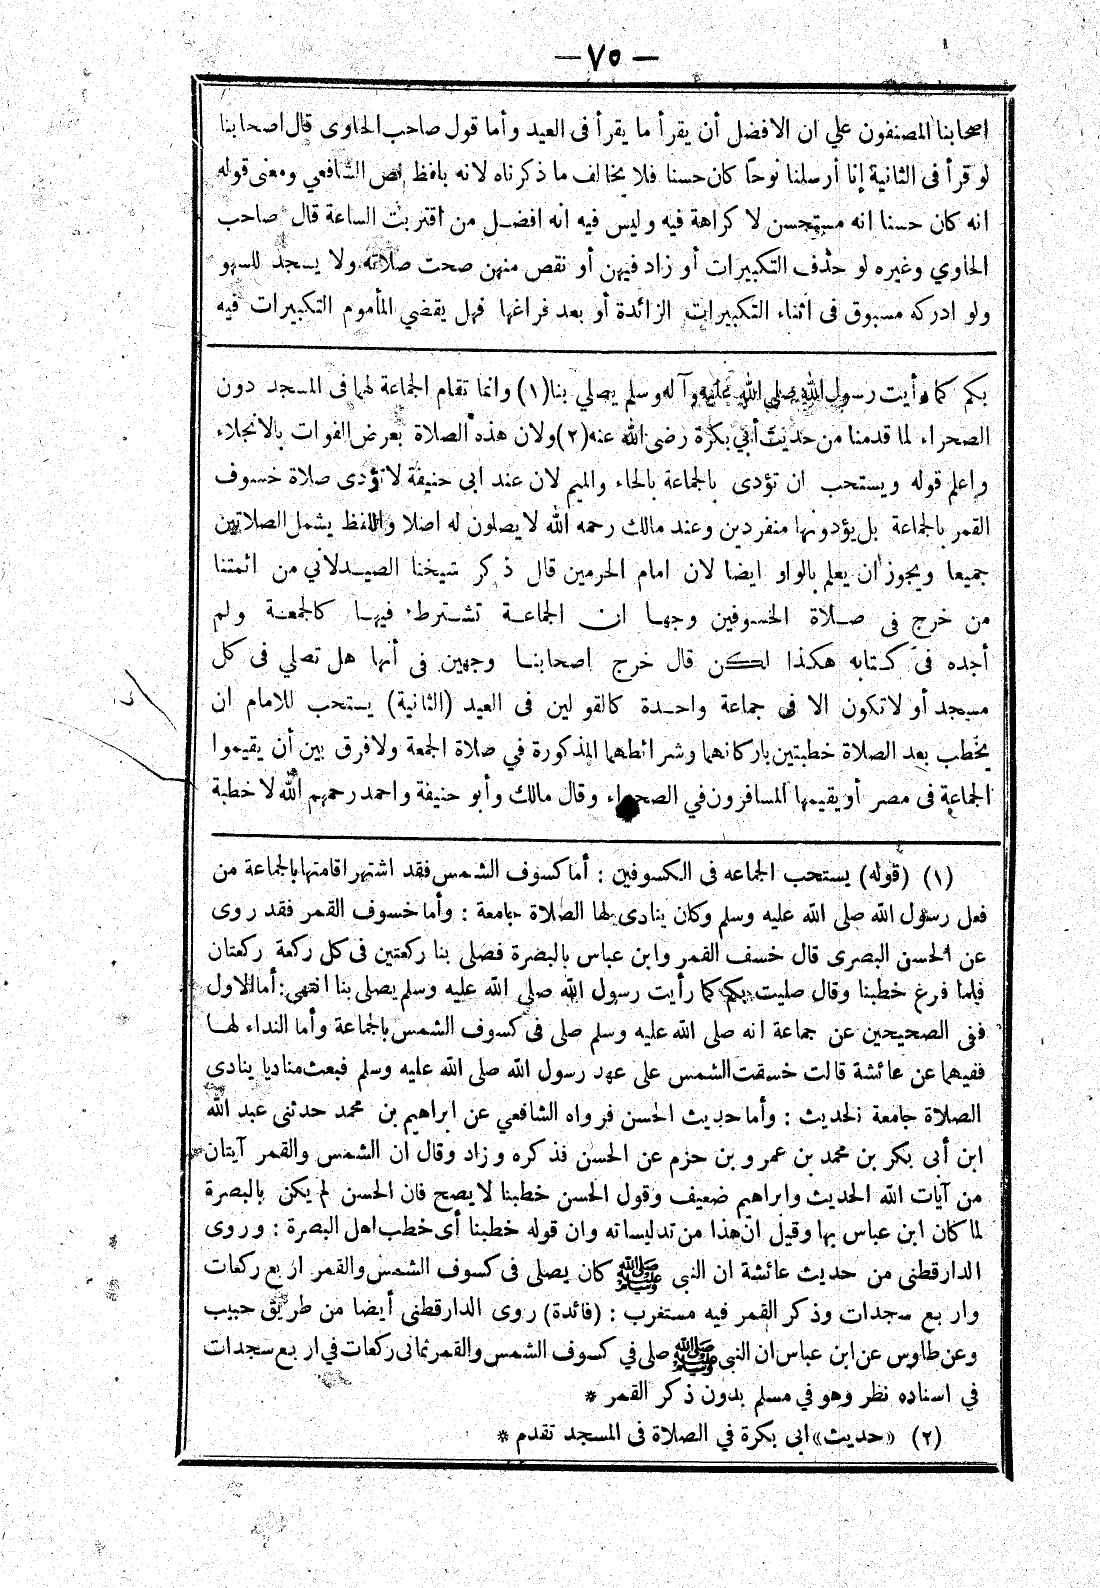 — ٧٥ —
اصحابنا المصنفون علي ان الافضل أن يقرأ ما يقرأ فى العيد وأما قول صاحب الحاوى قال اصحابنا
لو قرأ فى الثانية إنا أرسلنا نوحا كان حسنا فلا يخالف ما ذكرناه لانه بلفظ نص الشافعي ومعنى قوله
انه كان حسنا انه مستحسن لا كراهة فيه وليس فيه انه افضـل من اقتربت الساعة قال صاحب
الحاوي وغيره لو حذف التكبيرات أو زاد فيهن أو نقص منهن صحت صلاته ولا يسجد للسهو
ولو ادركه مسبوق فى اثناء التكبيرات الزائدة أو بعد فراغها فهل يقضي المأموم التكبيرات فيه
بكم كما رأيت رسول الله صلى الله عليه وآله وسلم يصلي بنا (١) وانما تقام الجماعة لهما فى المسجد دون
الصحراء لما قدمنا من حديث أبي بكرة رضى الله عنه (٢) ولان هذه الصلاة بعرض الفوات بالانجلاء
واعلم قوله ويستحب ان تؤدى بالجماعة بالحاء والميم لان عند ابى حنيفة لا تؤدى صلاة خسوف
القمر بالجماعة بل يؤدونها منفردين وعند مالك رحمه الله لا يصلون له اصلا واللفظ يشمل الصلاتين
جميعا ويجوز أن يعلم بالواو ايضا لان امام الحرمين قال ذكر شيخنا الصيـدلاني من ائمتنا
من خرج فى صـلاة الخسوفين وجهـا ان الجماعـة تشـترط فيهـا كالجمعـة ولم
أجده فى كـتابه هكذا لكن قال خرج اصحابنـا وجهين فى أنها هل تصلي فى كل
مسجد أو لا تكون الا فى جماعة واحـدة كالقولين فى العيد (الثانية) يستحب للامام ان
يخطب بعد الصلاة خطبتين باركانهما وشرائطهما المذكورة في صلاة الجمعة ولا فرق بين أن يقيموا
الجماعة فى مصر أو يقيمها المسافرون في الصحراء وقال مالك وأبو حنيفة واحمد رحمهم الله لا خطبة
(١) (قوله) يستحب الجماعه فى الكسوفين : أما كسوف الشمس فقد اشتهر اقامتها بالجماعة من
فعل رسول الله صلى الله عليه وسلم وكان ينادى لها الصلاة جامعة : وأما خسوف القمر فقد روى
عن الحسن البصرى قال خسف القمر وابن عباس بالبصرة فصلى بنا ركعتين فى كل ركعة ركعتان
فلما فرغ خطبنا وقال صليت بكم كما رأيت رسول الله صلي الله عليه وسلم يصلى بنا انتهى: أما الاول
ففى الصحيحين عن جماعة انه صلى الله عليه وسلم صلى فى كسوف الشمس بالجماعة وأما النداء لهـا
ففيهما عن عائشة قالت خسفت الشمس على عهد رسول الله صلى الله عليه وسلم فبعث مناديا ينادى
الصلاة جامعة الحديث : وأما حديث الحسن فرواه الشافعي عن ابراهيم بن محمد حدثنى عبد الله
ابن أبى بكر بن محمد بن عمرو بن حزم عن الحسن فذكره وزاد وقال ان الشمس والقمر آيتان
من آيات الله الحديث وابراهيم ضعيف وقول الحسن خطبنا لا يصح فان الحسن لم يكن بالبصرة
لما كان ابن عباس بها وقيل ان هذا من تدليساته وان قوله خطبنا أى خطب اهل البصرة : وروى
الدارقطنى من حديث عائشة ان النبى ﷺ كان يصلى فى كسوف الشمس والقمر اربع ركعات
واربع سجدات وذكر القمر فيه مستغرب : (فائدة) روى الدارقطنى أيضا من طريق حبيب
وعن طاوس عن ابن عباس ان النبى ﷺ صلى في كسوف الشمس والقمر ثمانى ركعات في اربع سجدات
في اسناده نظر وهو في مسلم بدون ذكر القمر *
(٢) «حديث» ابى بكرة في الصلاة فى المسجد تقدم *